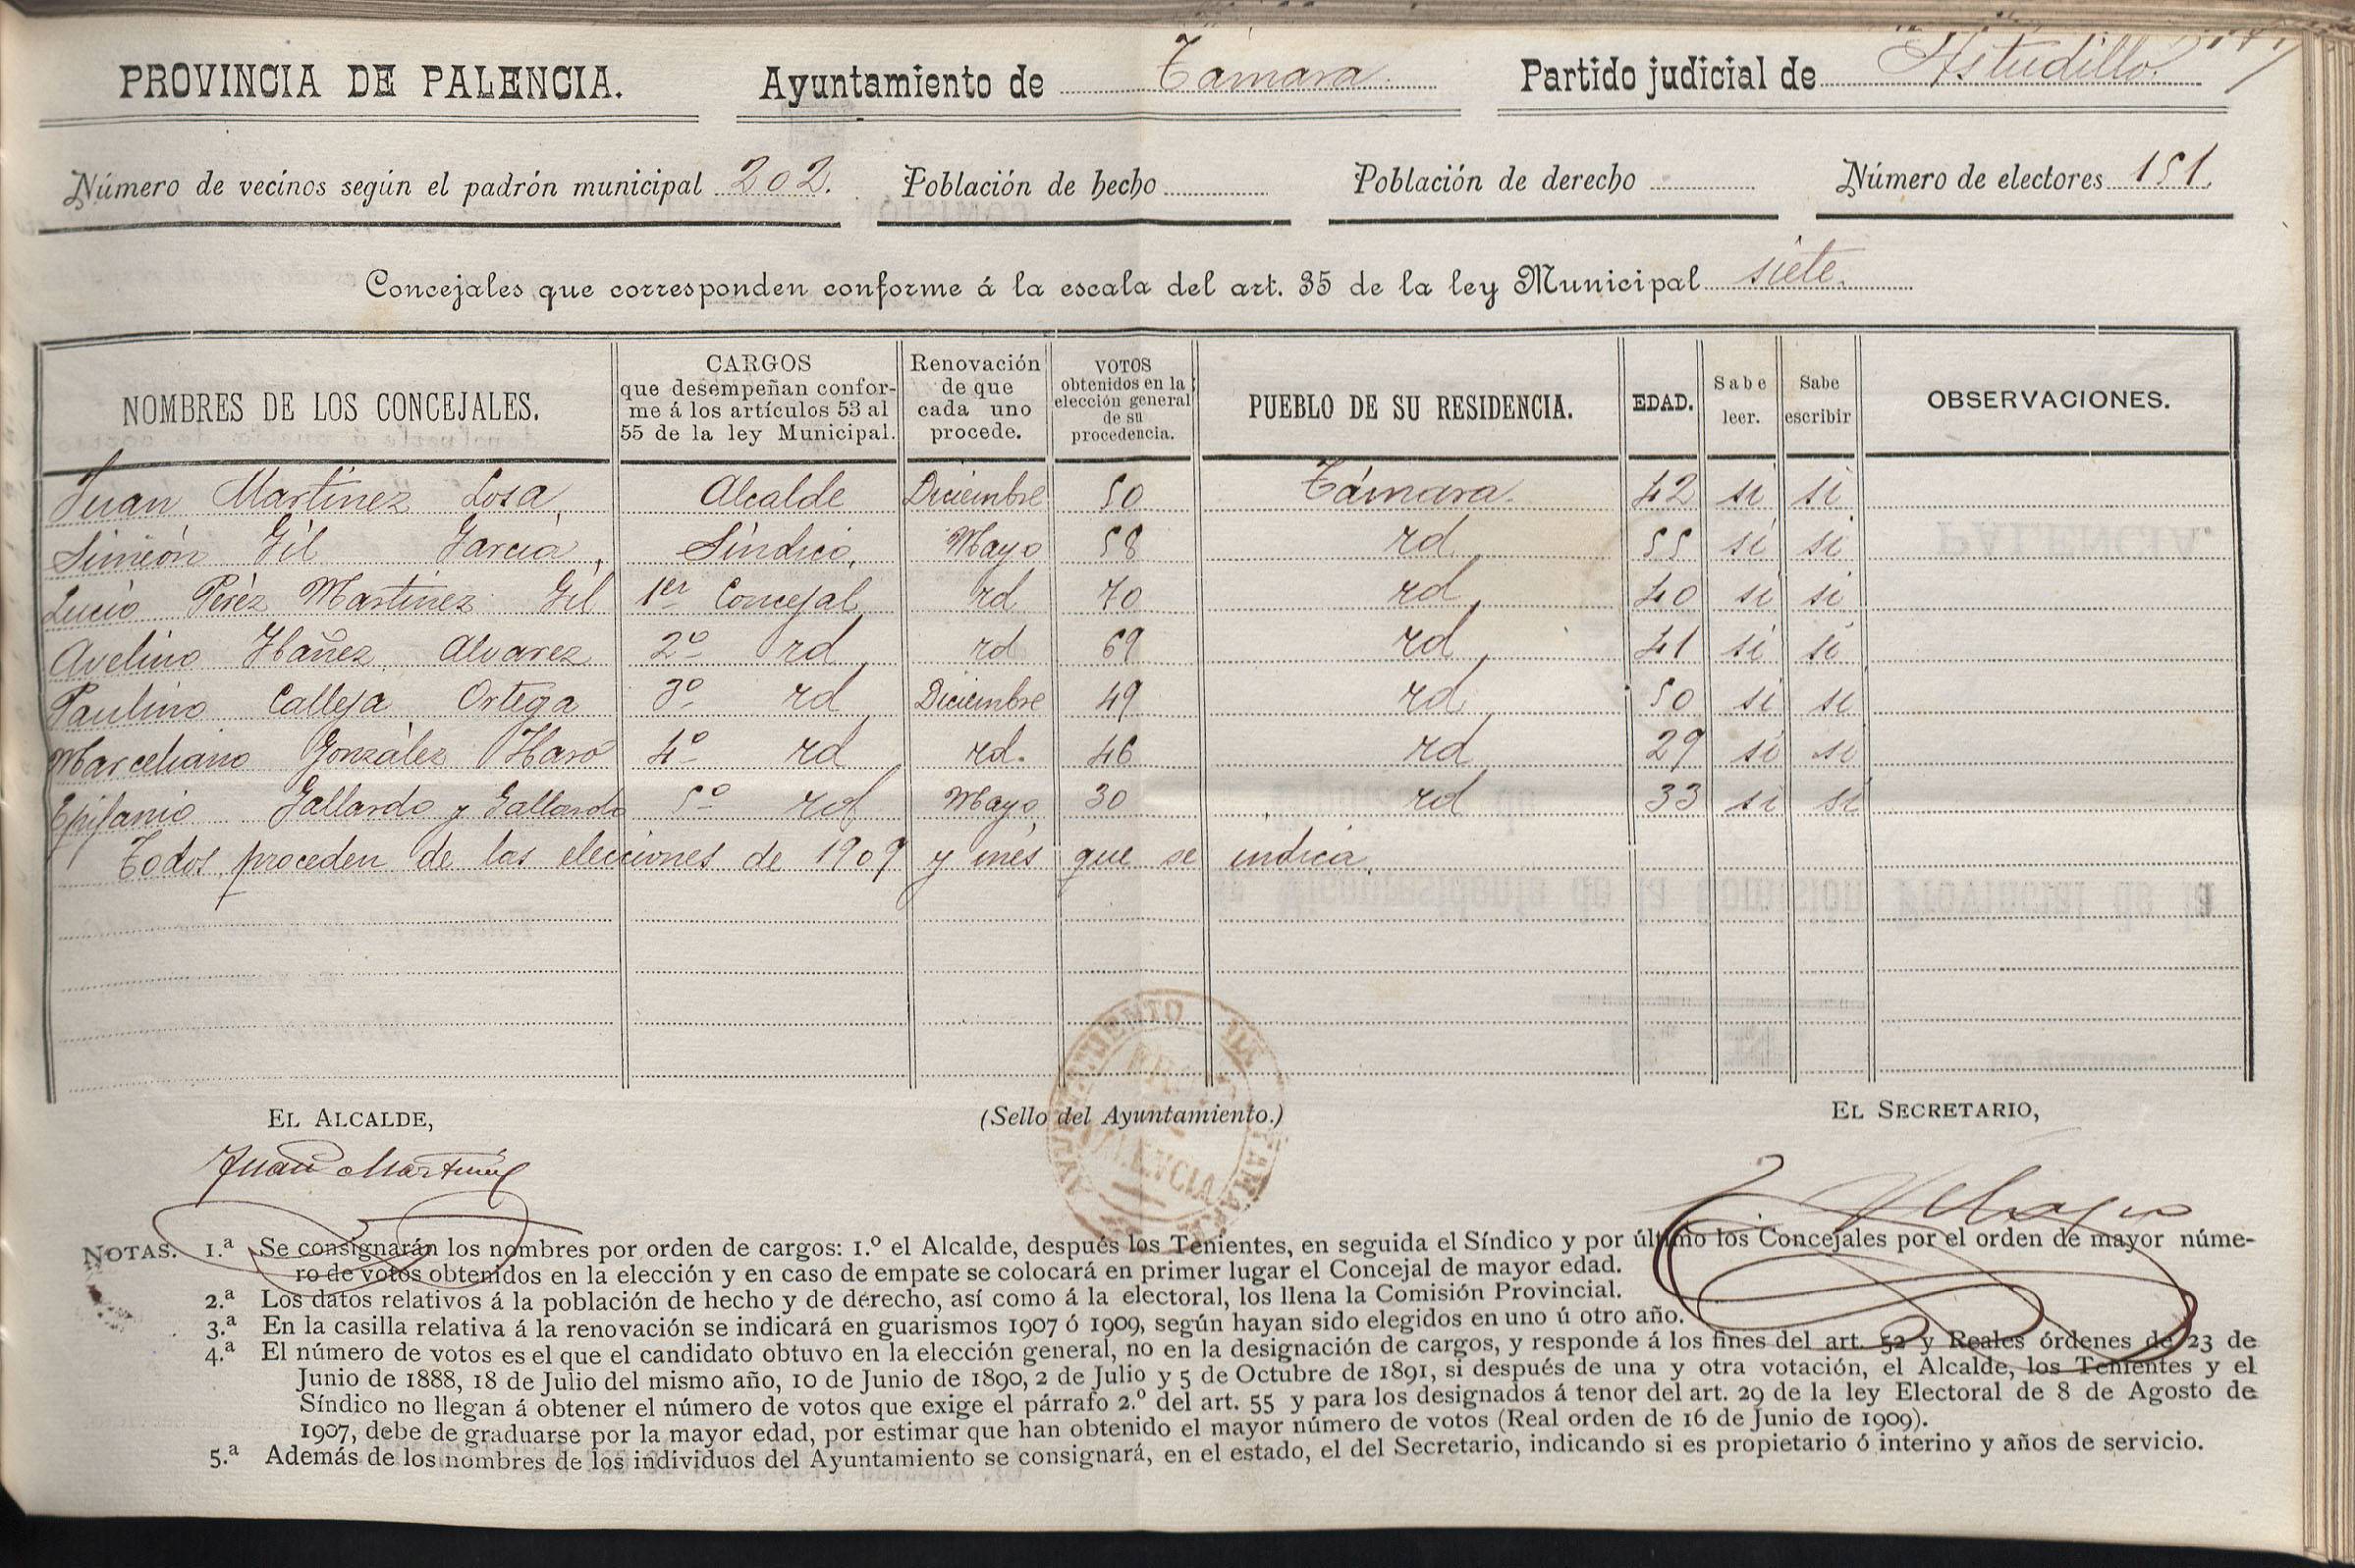 PROVINCIA DE PALENCIA. Ayuntamiento de Támara. Partido judicial de Astudillo.
Número de vecinos según el padrón municipal 202. Población de hecho Población de derecho Número de electores 151.
Concejales que corresponden conforme á la escala del art. 35 de la ley Municipal siete.
NOMBRES DE LOS CONCEJALES. CARGOS que desempeñan conforme á los artículos 53 al 55 de la ley Municipal. Renovación de que cada uno procede. VOTOS obtenidos en la elección general de su procedencia. PUEBLO DE SU RESIDENCIA. EDAD. Sabe leer. Sabe escribir OBSERVACIONES.
Juan Martínez Losa, Alcalde Diciembre 50 Támara. 42 si si
Simeón Gil García, Síndico, Mayo 58 rd, 55 si si
Lucio Pérez Martínez Gil 1er Concejal, rd 70 rd, 40 si si
Avelino Ibáñez Alvarez 2º rd, rd 69 rd, 41 si si
Paulino Calleja Ortega 3º rd, Diciembre 49 rd, 50 si si
Marceliano González Haro 4º rd rd. 46 rd 29 si si
Epifanio Gallardo y Gallardo 5º rd Mayo 30 rd 33 si si
Todos proceden de las elecciones de 1909 y mes que se indica,
EL ALCALDE, (Sello del Ayuntamiento.) EL SECRETARIO,
Juan Martínez
AYUNTAMIENTO TAMARA PALENCIA
NOTAS. 1.ª Se consignarán los nombres por orden de cargos: 1.º el Alcalde, después los Tenientes, en seguida el Síndico y por último los Concejales por el orden de mayor núme-
ro de votos obtenidos en la elección y en caso de empate se colocará en primer lugar el Concejal de mayor edad.
2.ª Los datos relativos á la población de hecho y de derecho, así como á la electoral, los llena la Comisión Provincial.
3.ª En la casilla relativa á la renovación se indicará en guarismos 1907 ó 1909, según hayan sido elegidos en uno ú otro año.
4.ª El número de votos es el que el candidato obtuvo en la elección general, no en la designación de cargos, y responde á los fines del art. 52 y Reales órdenes de 23 de
Junio de 1888, 18 de Julio del mismo año, 10 de Junio de 1890, 2 de Julio y 5 de Octubre de 1891, si después de una y otra votación, el Alcalde, los Tenientes y el
Síndico no llegan á obtener el número de votos que exige el párrafo 2.º del art. 55 y para los designados á tenor del art. 29 de la ley Electoral de 8 de Agosto de
1907, debe de graduarse por la mayor edad, por estimar que han obtenido el mayor número de votos (Real orden de 16 de Junio de 1909).
5.ª Además de los nombres de los individuos del Ayuntamiento se consignará, en el estado, el del Secretario, indicando si es propietario ó interino y años de servicio.